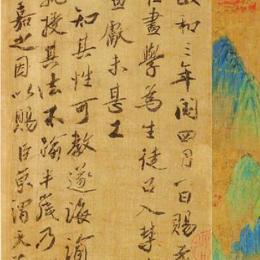 政和三年閏四月一日賜
在畫學為生徒召入禁
畫獻未甚工
知其性可教遂誨諭
授其法不踰半歲乃
嘉之因以賜臣京謂天